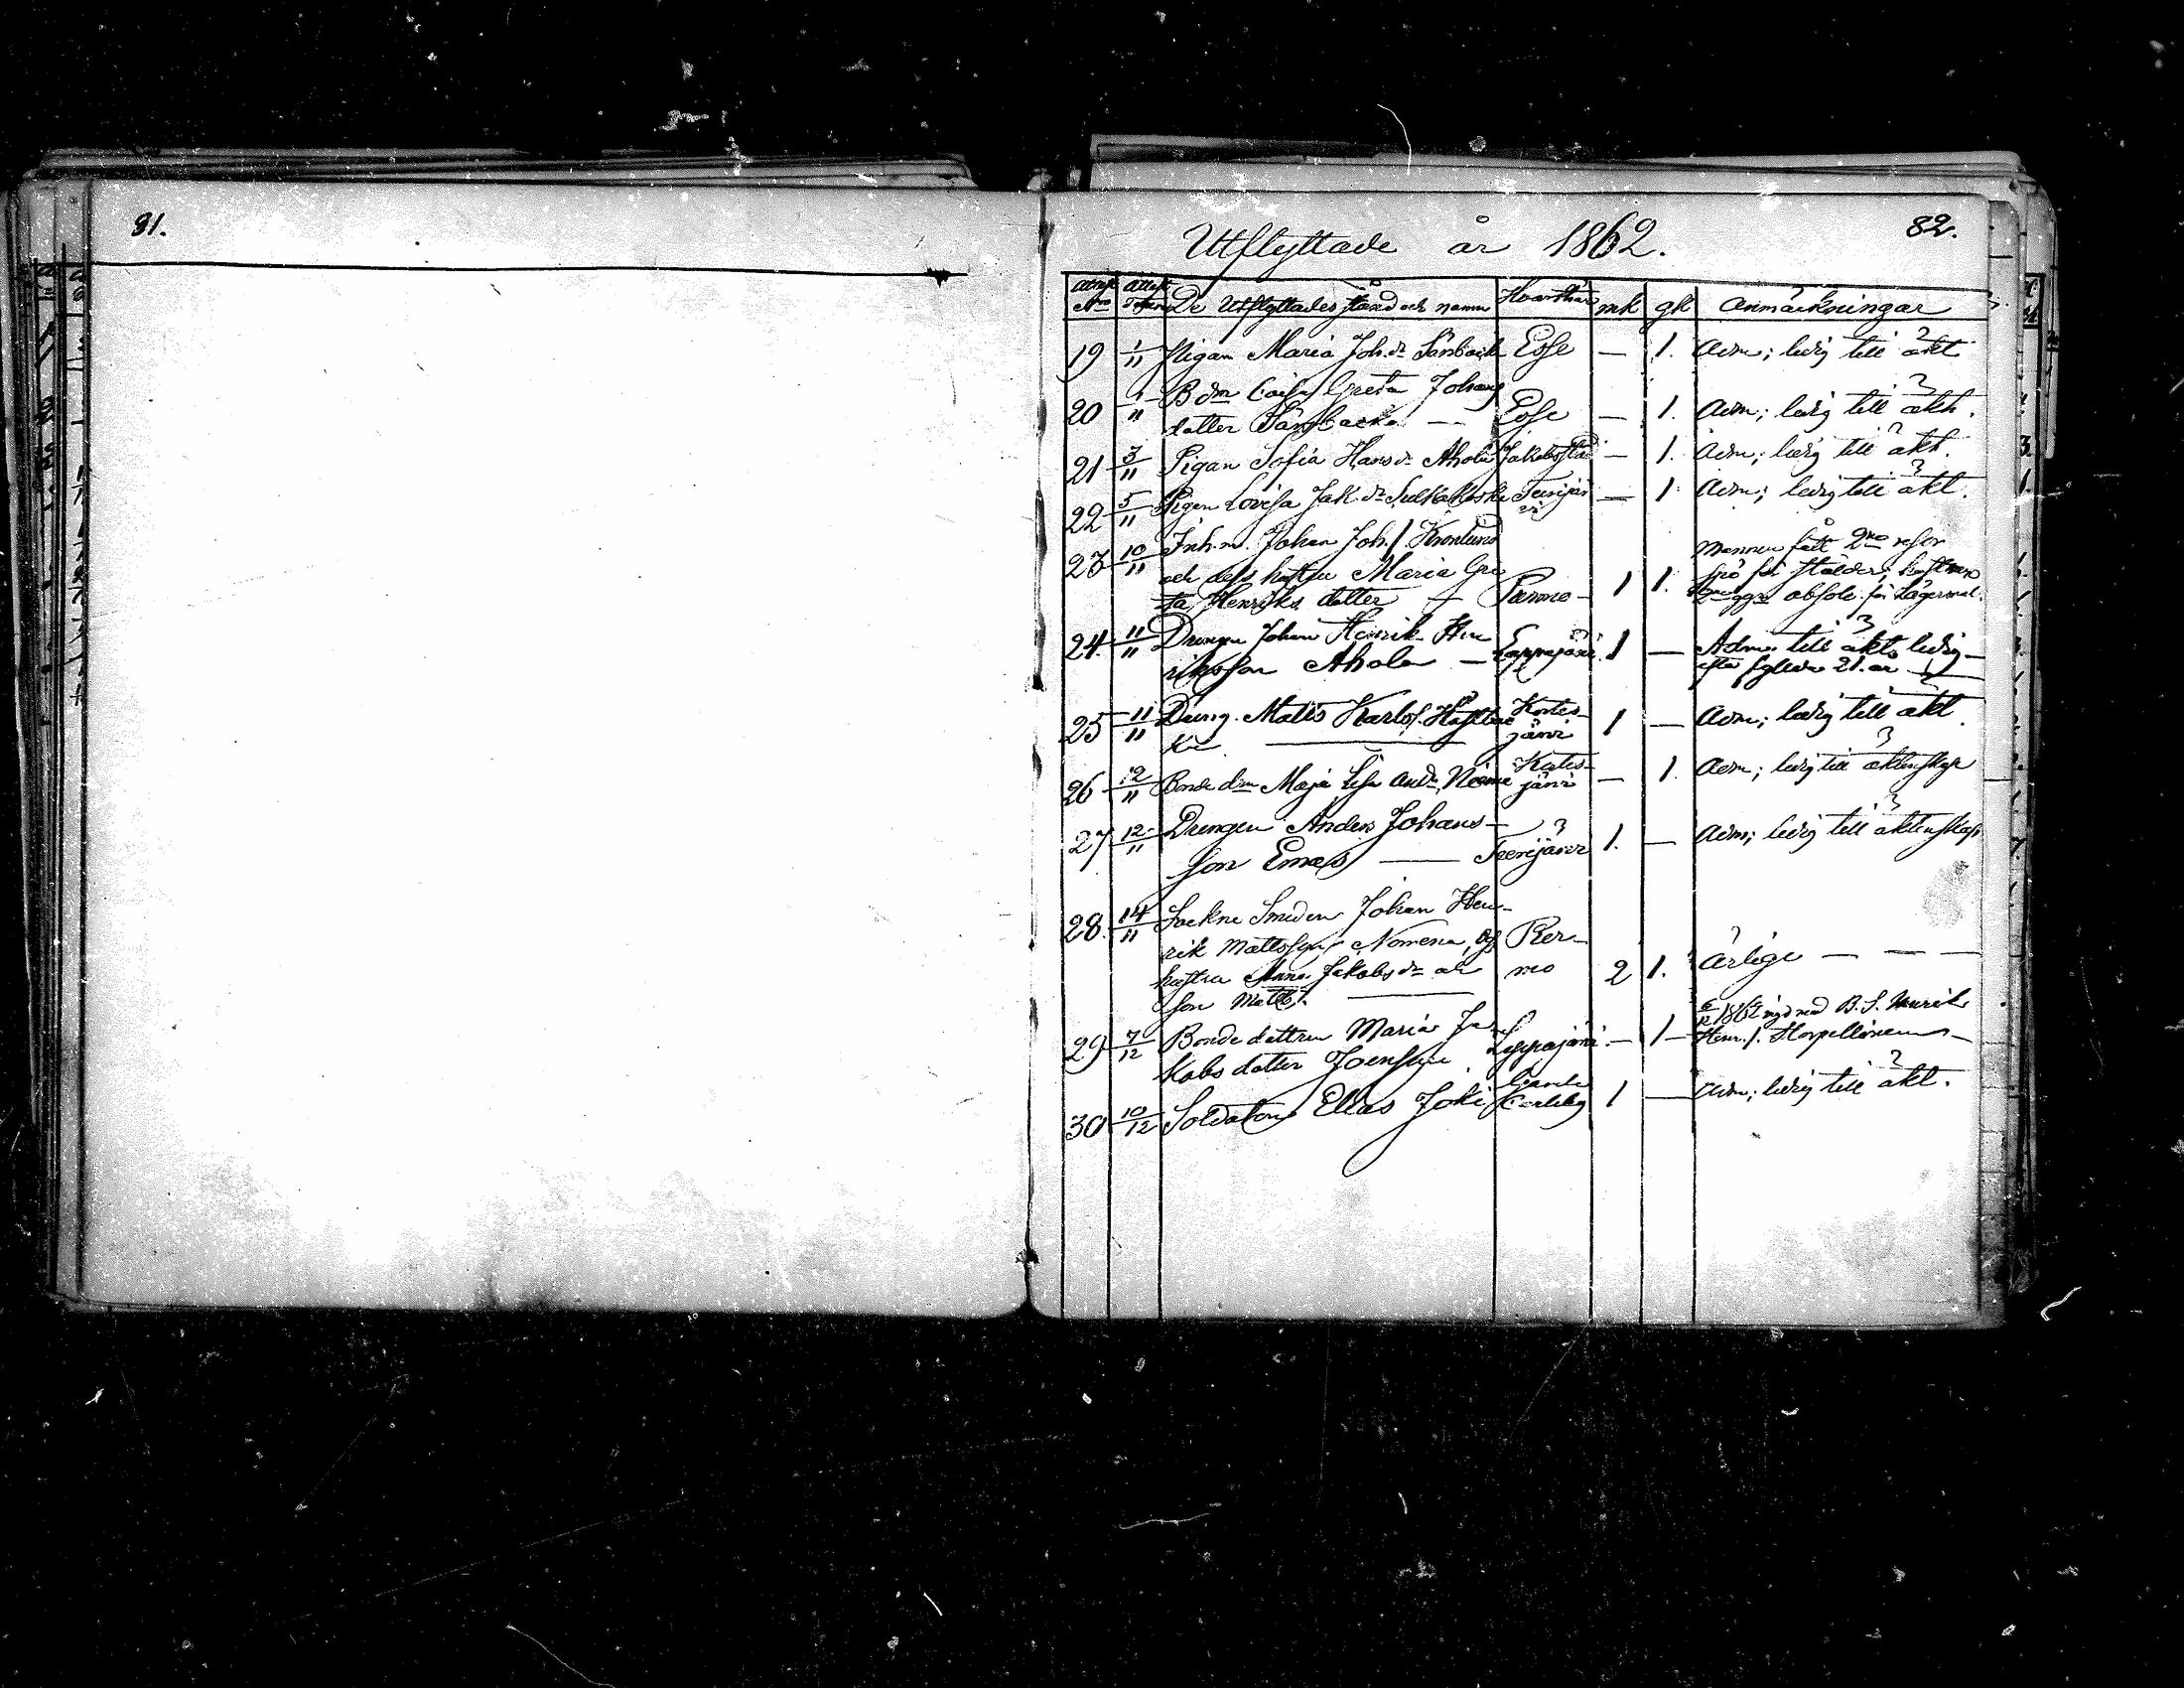 81.
82.
Utflyttade år 1862.
Attest Nro Attest Datum De Utflyttades stånd och namn Hvarthän mk qk Anmärkningar
19 1/11 Pigan Maria Joh. dr Sånback Esse — 1. Adm; ledig till äkt
20 1/11 B dm Caisa Greta Johans
dotter Sångbacka — Esse — 1. Adm; ledig till äkt.
21 3/11 Pigan Sofia Hans dr Ahola Jakobstad — 1. Adm; ledig till äkt.
22 5/11 Pigan Lovisa Jak. dr Sulkakoski Terijär
vi — 1 Adm; ledig till äkt.
23 10/11 Inh. m. Johan Joh. s. Kronlund Mannen fått 2ne resor
och dess hustru Maria Gre
ta Henriks dotter — Purmo — 1 1.
24. 11/11 Drengen Johan Henrik Hen
riksson Ahola — Lappajärvi 1 — Adm. till äkts ledig —
efter fyllda 21. år —
25 11/11 Dreng. Matts Karlss. Kortes-
järvi 1 — Adm; ledig till äkt.
26 12/11 Bonde dm Maja Lisa And. dr Kortes-
järvi — 1. Adm; ledig till äktenskap
27 12/11 Drengen Anders Johans-
son Emas — Terijärvi 1. — Adm; ledig till äktenskap
28. 14/11 Sockne Smeden Johan Hen-
rik Mattsson Nomena, och Per-
hustru Anna Jakobs dr och mo 2 1. Ärlige — — —
son Matts. —
29 7/12 Bonde dottren Maria Ja
kobs dotter Joensuu Lappajärvi — 1 — 1862 vigd med B. S. Henrik
Henr. s.
30 10/12 Soldaten Elias Joki Gamla
Carleby 1 — Adm; ledig till äkt.